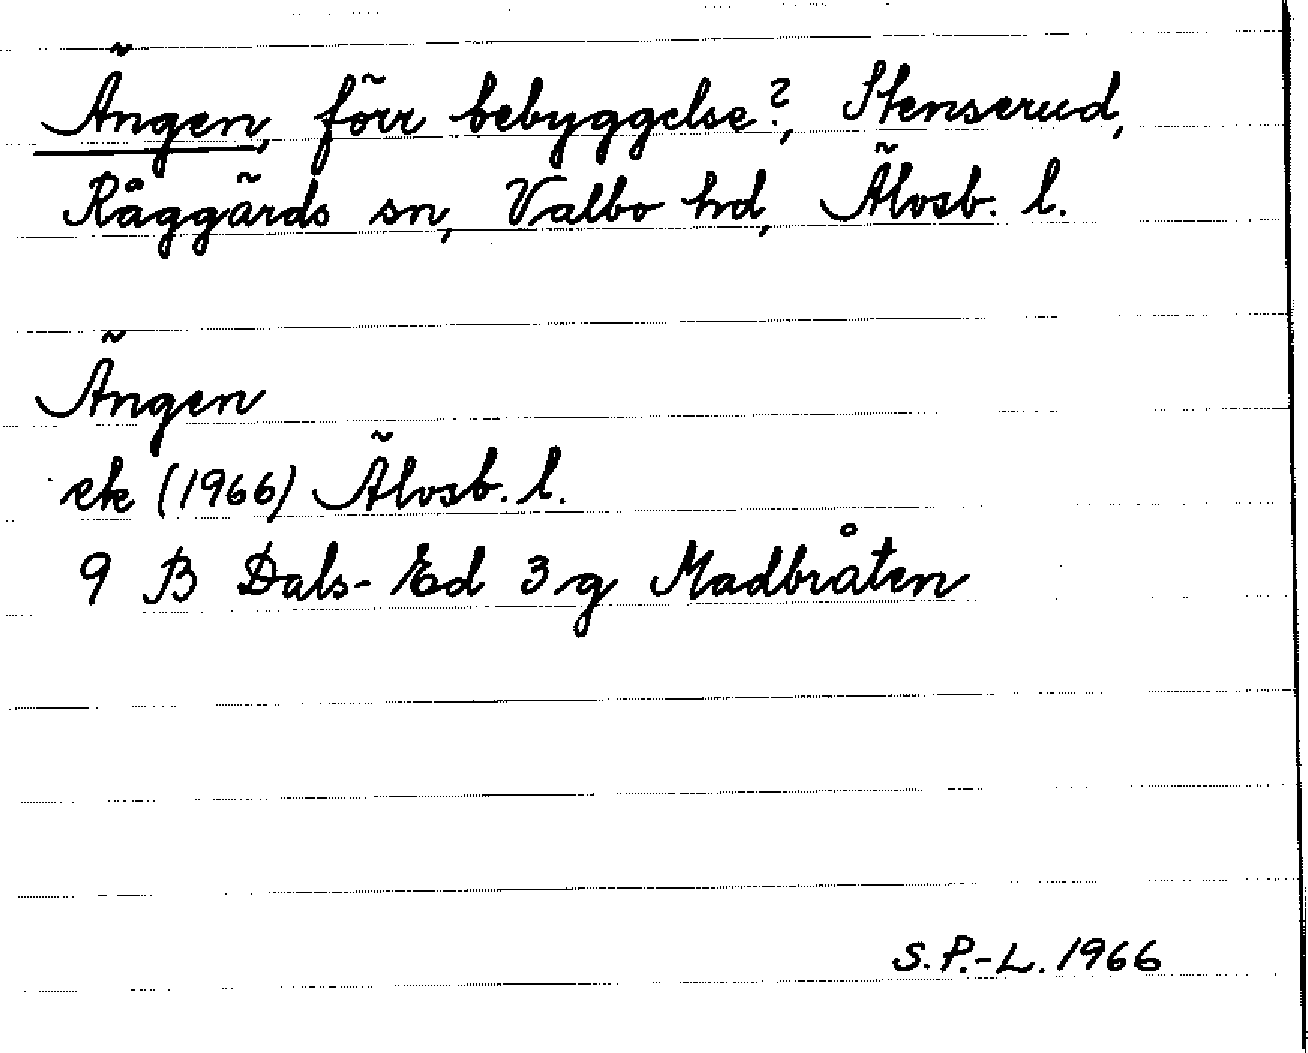 Ängen, förr bebyggelse?, Stenserud,
Råggärds sn, Valbo hd, Älvsb. l.
Ängen
ek (1966) Älvsb. l.
9 B Dals-Ed 3 g Madbråten
S.P.-L. 1966